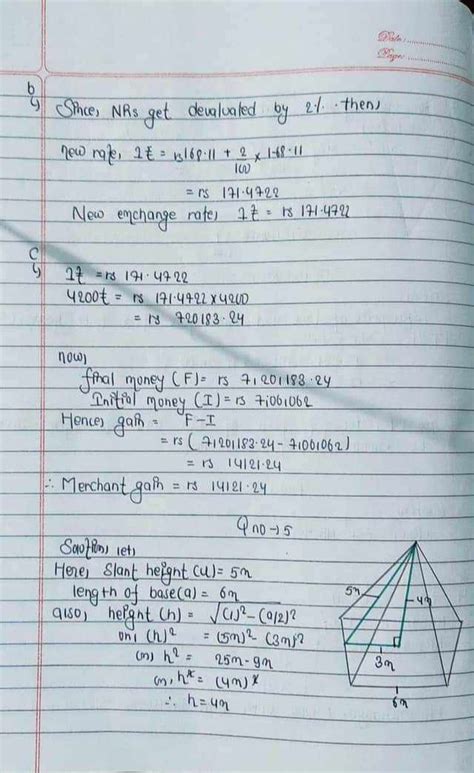 Date:
Page:
b
Since, NRs get devaluated by 2% then,
new rate, 1£ = rs168.11 + 2/100 × 168.11
= rs 171.4722
New enchange rate, 1£ = rs 171.4722
C
1£ = rs 171.4722
4200£ = rs 171.4722×4200
= rs 720183.24
now,
final money (F) = rs 7,201183.24
Initial money (I) = rs 7,061062
Hence, gain = F-I
= rs (7,201183.24 - 7,061062)
= rs 14121.24
∴ Merchant gain = rs 14121.24
Q no → 5
Solution, let,
Here, Slant height (l) = 5x
length of base(a) = 6x
also, height (h) = √(l)²-(a/2)²
or, (h)² = (5x)² - (3x)²
or, h² = 25x-9x
or, h² = (4x)²
∴ h = 4x
5x
4x
3x
6x